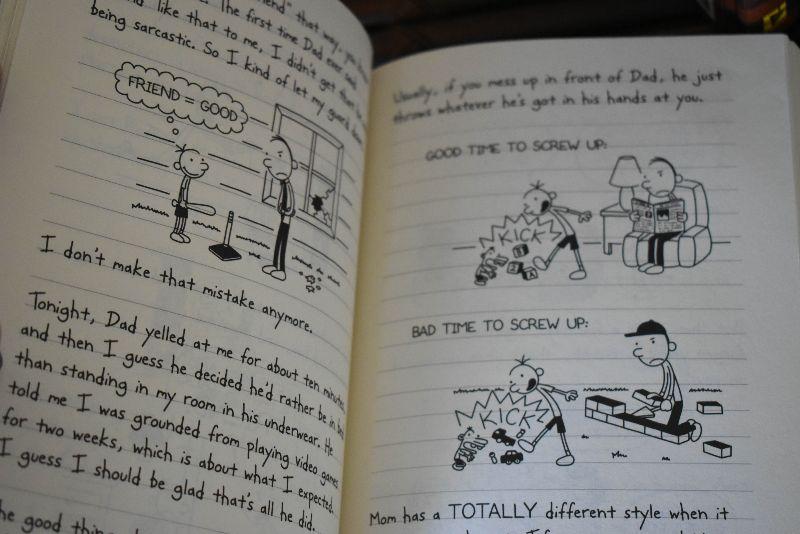 friend" that way, you
like that to me, I didn't get that he
The first time Dad ever said
being sarcastic. So I kind of let my guard down.
FRIEND = GOOD
I don't make that mistake anymore.
Tonight, Dad yelled at me for about ten minutes,
and then I guess he decided he'd rather be in bed
than standing in my room in his underwear. He
told me I was grounded from playing video games
for two weeks, which is about what I expected.
I guess I should be glad that's all he did.
he good thing
Usually, if you mess up in front of Dad, he just
throws whatever he's got in his hands at you.
GOOD TIME TO SCREW UP:
KICK
BAD TIME TO SCREW UP:
KICK
Mom has a TOTALLY different style when it